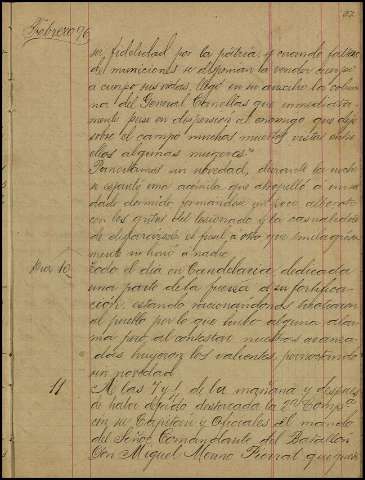 87
Febrero 96
su fidelidad por la pátria, y cuando faltos
de municiones se disponian a vender cuerpo
a cuerpo sus vidas, llegó en su auxilio la colum
na del General Canellas que inmediata-
mente puso en dispersion al enemigo que dejó
sobre el campo muchos muertos vistos entre
ellos algunas mugeres."
Pernoctamos sin novedad, durante la noche
se espantó una acémila que atropelló a un sol
dado dormido formandose un poco alboroto
con los gritos del lesionado y la casualidad
de dispararsele el fusil a otro que milagrosa
mente no hirió a nadie
Dia 10
Todo el dia en Candelaria dedicada
una parte de la fuerza a su fortifica-
cion; estando racionandonos tirotearon
al pueblo por lo que hubo alguna alar
ma pero al contestar nuestras avanza-
das huyeron los valientes, pernoctando
sin novedad
11
A las 7 y ½ de la mañana y despues
de haber dejado destacada la 2ª Compª
con su Capitan y Oficiales al mando
del Señor Comandante del Batallon
Don Miguel Merino que